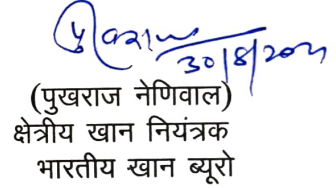 30/8/2021
(पुखराज नेणिवाल)
क्षेत्रीय खान नियंत्रक
भारतीय खान ब्यूरो